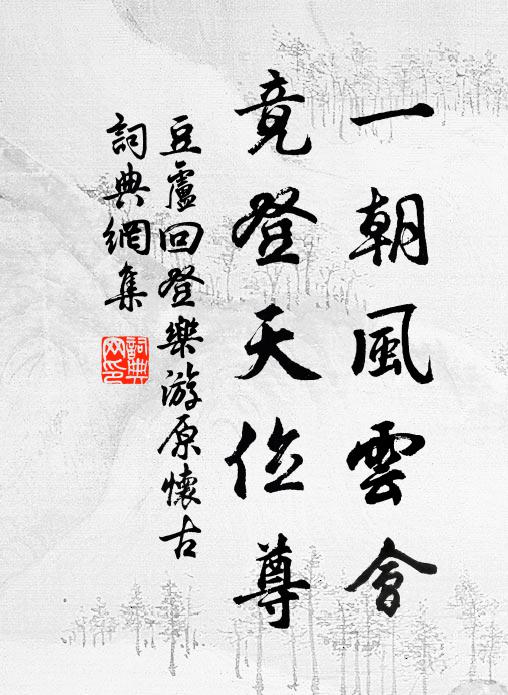 一朝風雲會
竟登天位尊
豆盧回登樂游原懷古
詞典網集
詞典網印